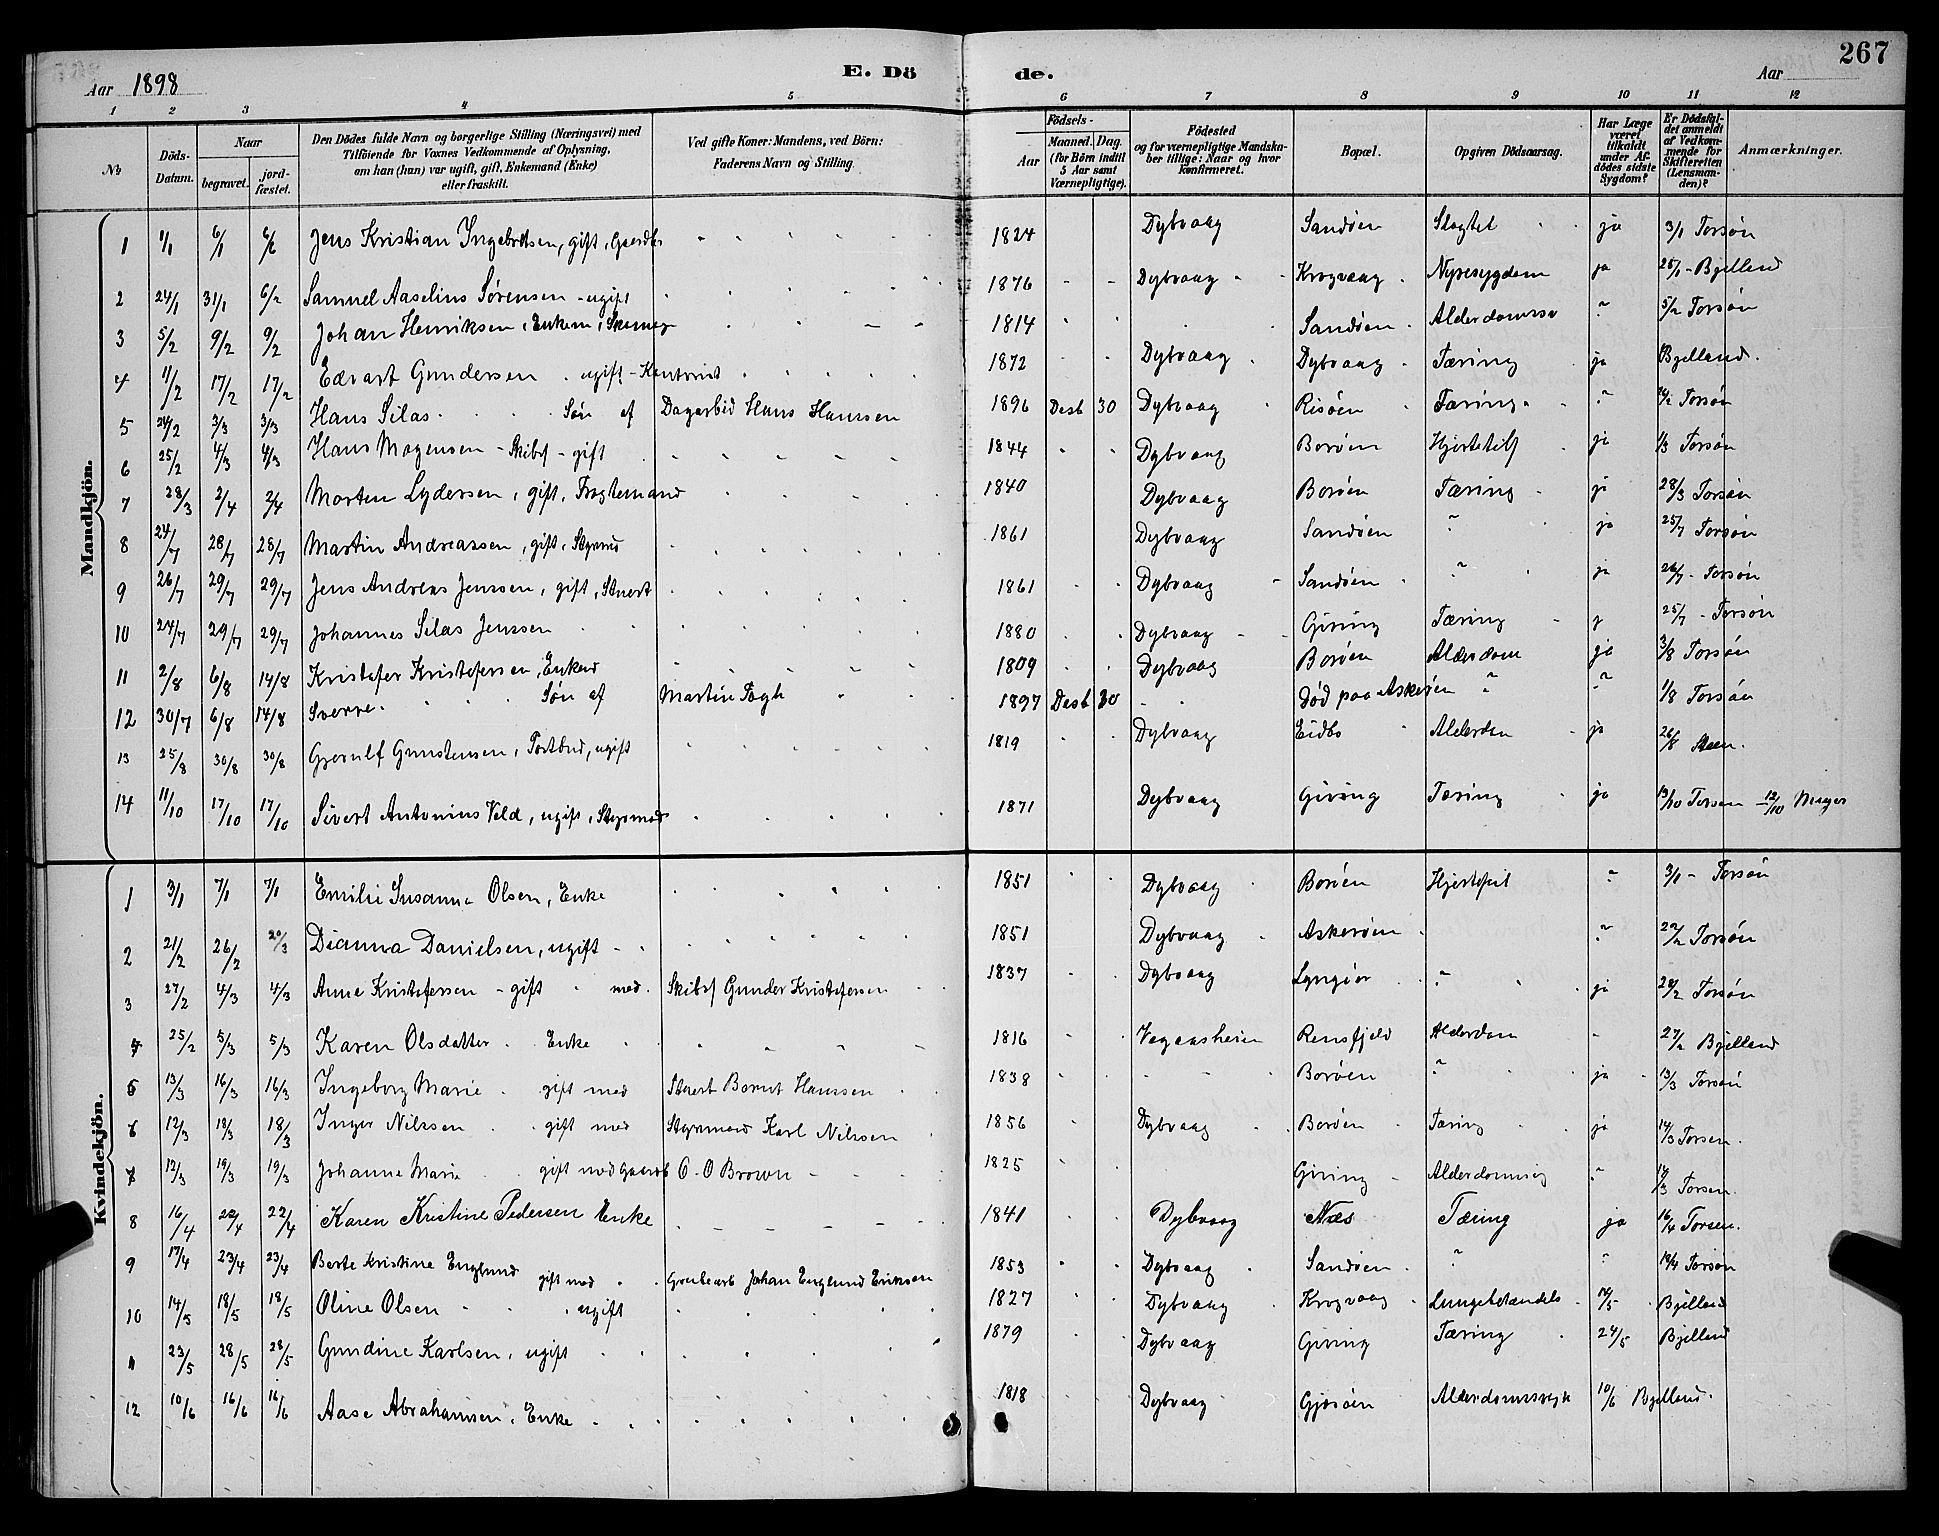 267
Aar 1898 E. Dö de. Aar
1 2 3 4 5 6 7 8 9 10 11 12
No Döds-Datum. Naar begravet. jordfæstet. Den Dödes fulde Navn og borgerlige Stilling (Næringsvei) med Tilföiende for Voxnes Vedkommende af Oplysning, om han (hun) var ugift, gift, Enkemand (Enke) eller fraskilt. Ved gifte Koner: Mandens, ved Börn: Faderens Navn og Stilling. Födsels- Aar Maaned. Dag. (for Börn indtil 5 Aar samt Værnepligtige). Födested og for værnepligtige Mandskaber tillige: Naar og hvor konfirmeret. Bopæl. Opgiven Dödsaarsag. Har Læge været tilkaldt under Afdödes sidste Sygdom? Er Dödsfaldet anmeldt af Vedkommende for Skifteretten (Lensmanden)? Anmærkninger.
Mandkjön.
1 1/1 6/1 6/2 Jens Kristian Ingebretsen, gift, 1824 Dybvaag Sandøen Slagtet ja 3/1 Torsøn
2 24/1 31/1 6/2 Samuel Aaselius Sørensen - ugift 1876 Dybvaag Krogvaag Nyresygdom ja 25/1 - Bjelland
3 5/2 9/2 9/2 Johan Henriksen, Enkem, 1814 Sandøen 5/2 Torsøn
4 11/2 17/2 17/2 Edvart Gundersen ugift - Kontorist 1872 Dybvaag Dybvaag Tæring ja Bjelland.
5 24/2 3/3 3/3 Hans Silas Søn af Dagarbeid Hans Hanssen 1896 Desb 30 Dybvaag Risøen Tæring Torsøn
6 25/2 4/3 4/3 Hans Mogensen - Skibsf - gift 1844 Dybvaag Borøen ja 1/3 Torsøn
7 28/3 2/4 2/4 Morten Lydersen, gift, Fragtemand 1840 Dybvaag Borøen Tæring ja 28/3 Torsøn
8 24/7 28/7 28/7 Martin Andreassen, gift, 1861 Dybvaag Sandøen " ja 25/7 Torsøn
9 26/7 29/7 29/7 Jens Andreas Jenssen, gift, Stuert 1861 Dybvaag Sandøen " ja 26/7 - Torsøn
10 24/7 29/7 29/7 Johannes Silas Jenssen 1880 Dybvaag Giving Tæring j 25/7 - Torsøn
11 2/8 6/8 14/8 Kristofer Kristofersen, 1809 Dybvaag Borøen Alderdom ja 3/8 Torsøn
12 30/7 6/8 14/8 Sverre Søn af Martin Fogh 1897 Desb 30 Død paa Askerøen " " 1/8 Torsøn
13 25/8 30/8 30/8 Gunstensen, Postbud, ugift 1819 Dybvaag Eidbo ja 26/8
14 11/10 17/10 17/10 Sivert Antonius Veld, ugift, Styrmad 1871 Dybvaag Giving Tæring ja 13/10 Torsen - 12/10
Kvindekjön.
1 3/1 7/1 7/1 Emilie Susanna Olsen, Enke 1851 Dybvaag Borøen " 3/1 - Torsøn
2 21/2 26/2 20/3 Dianna Danielsen, ugift 1851 Dybvaag Askerøen " 22/2 Torsøn
3 27/2 4/3 4/3 Anne Kristofersen - gift med Skibsf Gunder Kristofersen 1837 Dybvaag Lyngiør " ja 28/2 Torsøn
4 25/2 5/3 5/3 Karen Olsdatter Enke 1816 Vegaarsheien Rensfjeld Alderdom 27/2 Bjelland
5 13/3 16/3 16/3 Ingeborg Marie gift med Stuert Bornt Hanssen 1838 Borøen " ja 13/3 Torsøn
6 12/3 18/3 18/3 Inger Nilssen gift med Styrmand Karl Nilssen 1856 Dybvaag Borøen Tæring ja 14/3 Torsen.
7 12/3 19/3 19/3 Johanne Marie gift med Gaardb O. O Brown 1825 Giving " Torsen.
8 16/4 22/4 22/4 Karen Kristine Pedersen Enke 1841 Dybvaag Næs Tæring ja 16/4 Torsen.
9 17/4 23/4 23/4 Berte Kristine Englund gift med Johan Englund Eriksen 1853 Dybvaag Sandøen " " 19/4 Torsøn
10 14/5 18/5 18/5 Oline Olsen ugift 1827 Dybvaag Krogvaag Bjelland
11 23/5 28/5 28/5 Gundine Karlsen, ugift 1879 Dybvaag Giving Tæring 24/5 Bjelland
12 10/6 16/6 16/6 Aase Abrahamsen, Enke 1818 Dybvaag Gjesøen 10/6 Bjelland.